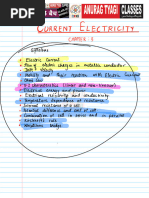 ANURAG TYAGI CLASSES
CURRENT ELECTRICITY
CHAPTER - 3
Syllabus
• Electric Current
• Flow of electric charges in metallic conductor
• Drift velocity
• Mobility and their relation with Electric Current
• Ohm's law
• V-I characteristics (linear and non-linear)
• Electrical energy and power
• Electrical resistivity and conductivity
• Temperature dependence of resistance
• Internal resistance of a cell
• Potential difference and emf of cell
• Combination of cells in series and in parallel
• Kirchhoff's rules
• Wheatstone bridge